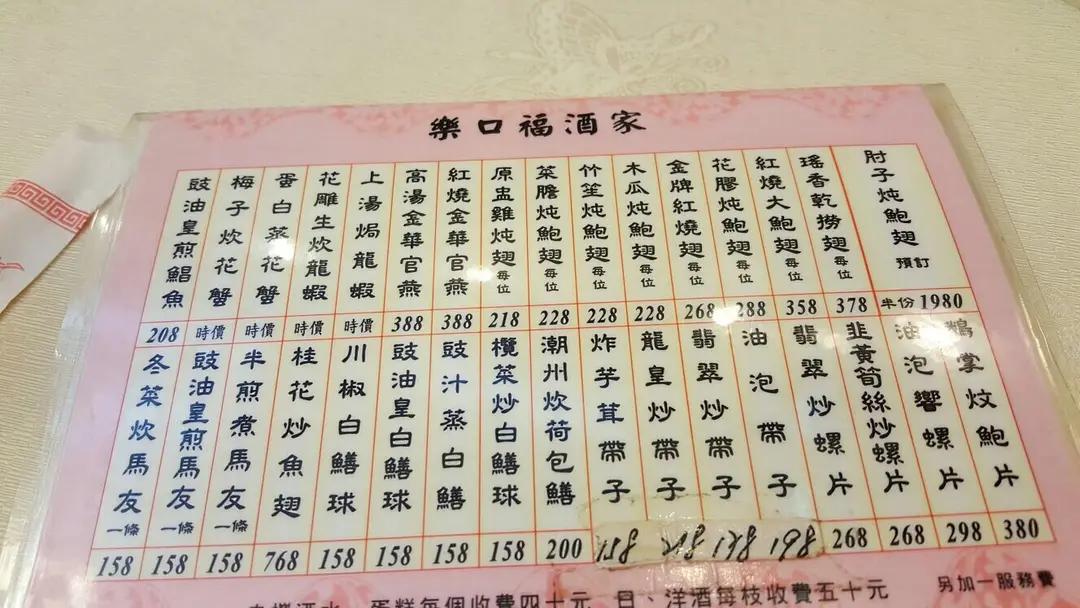 樂口福酒家
肘子炖鮑翅 預訂 半份 1980
瑤香乾撈翅 每位 378
紅燒大鮑翅 每位 358
花膠炖鮑翅 每位 288
金牌紅燒翅 每位 268
木瓜炖鮑翅 每位 228
竹笙炖鮑翅 每位 228
菜膽炖鮑翅 每位 228
原盅雞炖翅 每位 218
紅燒金華官燕 388
高湯金華官燕 388
上湯焗龍蝦 時價
花雕生炊龍蝦 時價
蛋白蒸花蟹 時價
梅子炊花蟹 時價
豉油皇煎鯧魚 208
鵝掌炆鮑片 380
油泡響螺片 298
韭黃筍絲炒螺片 268
翡翠炒螺片 268
油泡帶子 198
翡翠炒帶子
龍皇炒帶子
炸芋茸帶子 158
潮州炊荷包鱔 200
欖菜炒白鱔球 158
豉汁蒸白鱔 158
豉油皇白鱔球 158
川椒白鱔球 158
桂花炒魚翅 768
半煎煮馬友 一條 158
豉油皇煎馬友 一條 158
冬菜炊馬友 一條 158
蛋糕每個收費四十元 洋酒每枝收費五十元
另加一服務費